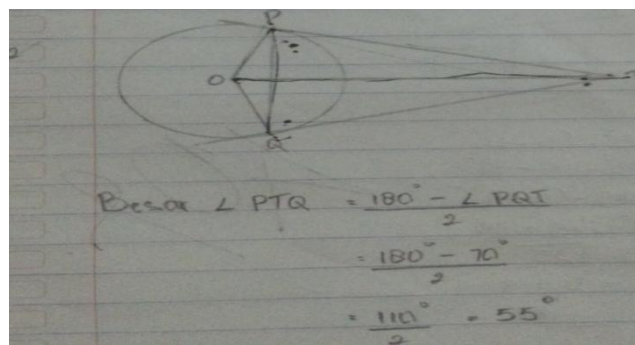 P
O
Q
Besar ∠ PTQ = 180° - ∠ PQT / 2
= 180° - 70° / 2
= 110° / 2 = 55°